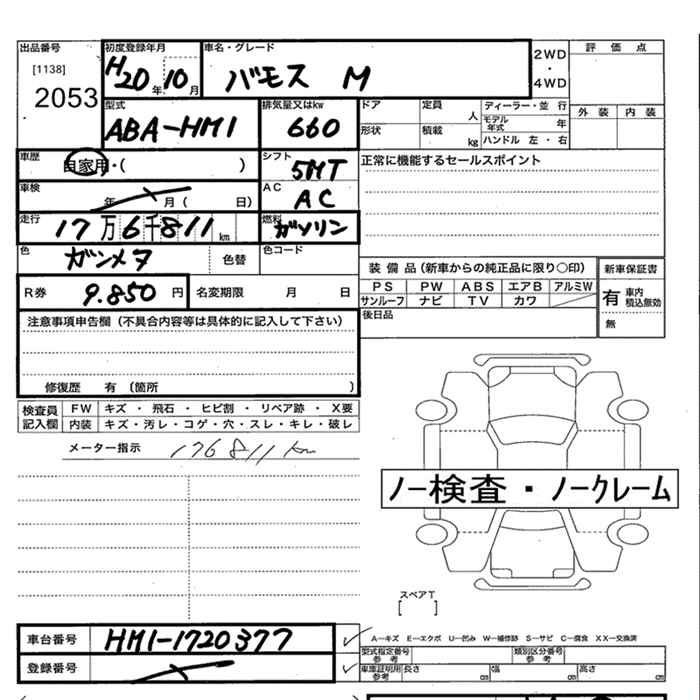 出品番号 初度登録年月 車名・グレード 2WD・4WD 評価点
[1138] H20年10月 バモス M
2053
型式 排気量又はkw ドア 定員 人 ディーラー・並行 外装 内装
ABA-HM1 660 モデル年式 年
形状 積載 kg ハンドル 左・右
車歴 自家用・( ) シフト 5MT 正常に機能するセールスポイント
車検 年 月( 日) AC AC
走行 17万6千811km 燃料 ガソリン
色 ガンメタ 色替 色コード
装備品(新車からの純正品に限り〇印) 新車保証書
R券 9.850円 名変期限 月 日
PS PW ABS エアB アルミW 有 車内積込無効
サンルーフ ナビ TV カワ
注意事項申告欄(不具合内容等は具体的に記入して下さい) 後日品 無
修復歴 有(箇所 )
検査員記入欄 FW キズ・飛石・ヒビ割・リペア跡・X要
内装 キズ・汚レ・コゲ・穴・スレ・キレ・破レ
メーター指示 176811km
ノー検査・ノークレーム
スペアT
[ ]
車台番号 HM1-1720377
A―キズ E―エクボ U―凹み W―補修跡 S―サビ C―腐食 XX―交換済
型式指定番号 参考 類別区分番号 参考
登録番号
車庫証明用 参考 長さ cm 幅 cm 高さ cm